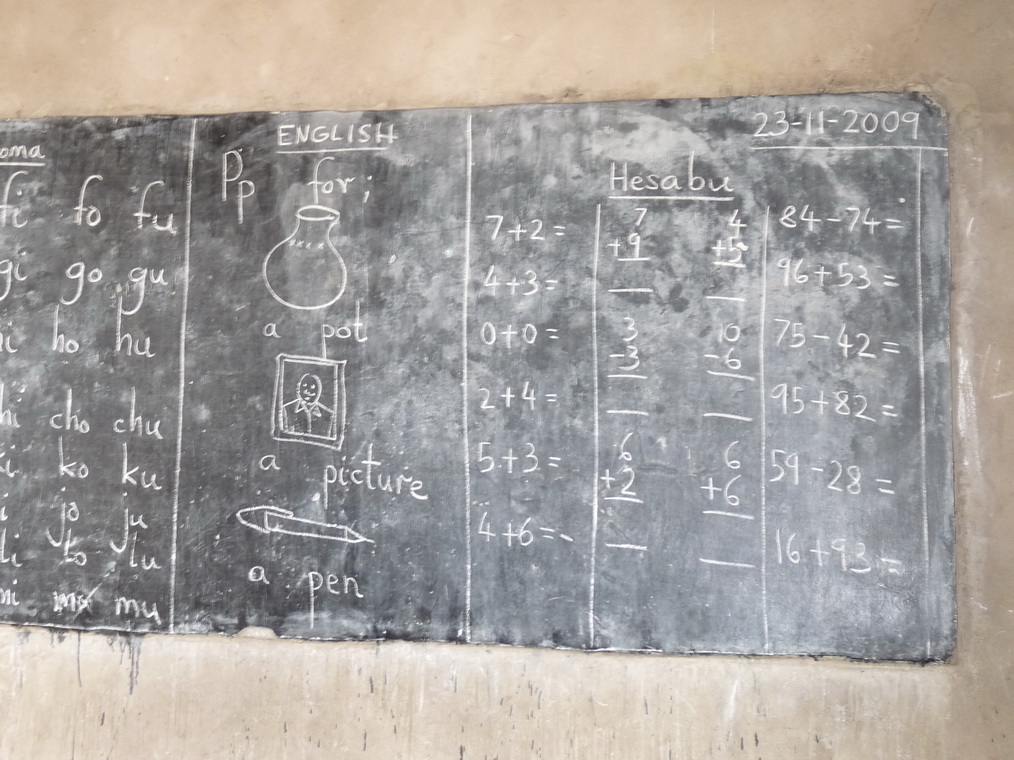 23-11-2009
oma
fi fo fu
gi go gu
hi ho hu
hi cho chu
ki ko ku
i jo ju
li lo lu
mi mo mu
ENGLISH
Pp for;
a pot
a picture
a pen
Hesabu
7+2=
4+3=
0+0=
2+4=
5+3=
4+6=
7
+9
4
+5
3
-3
10
-6
6
+2
6
+6
84-74=
96+53=
75-42=
95+82=
59-28=
16+93=